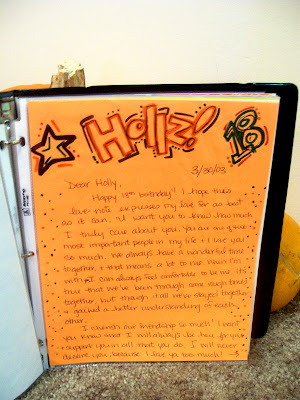 Hollz!
18
3/30/03
Dear Holly,
Happy 18th birthday! I hope this
love note expresses my love for as best
as it can. I want you to know how much
I truly care about you. You are one of the
most important people in my life & I love you
so much. We always have a wonderful time
together, & that means a lot to me. When I'm
with you I can always feel comfortable to be me. It's
true that we've been through some rough times
together, but though it all we've stayed together
& gained a better understanding of each
other.
I cherish our friendship so much! I want
you know that I will always be here for you to
support you in all that you do. I will never
deceive you because I love you too much!